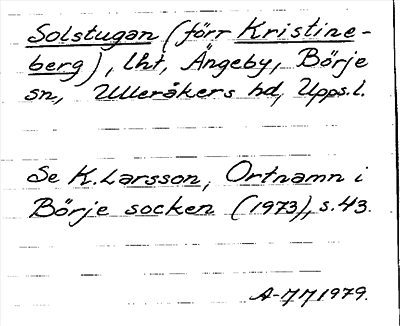 Solstugan (förr Kristine-
berg), lht, Ängeby, Börje
sn, Ulleråkers hd, Upps.l.
Se K. Larsson, Ortnamn i
Börje socken (1973), s. 43.
A-M M 1979.